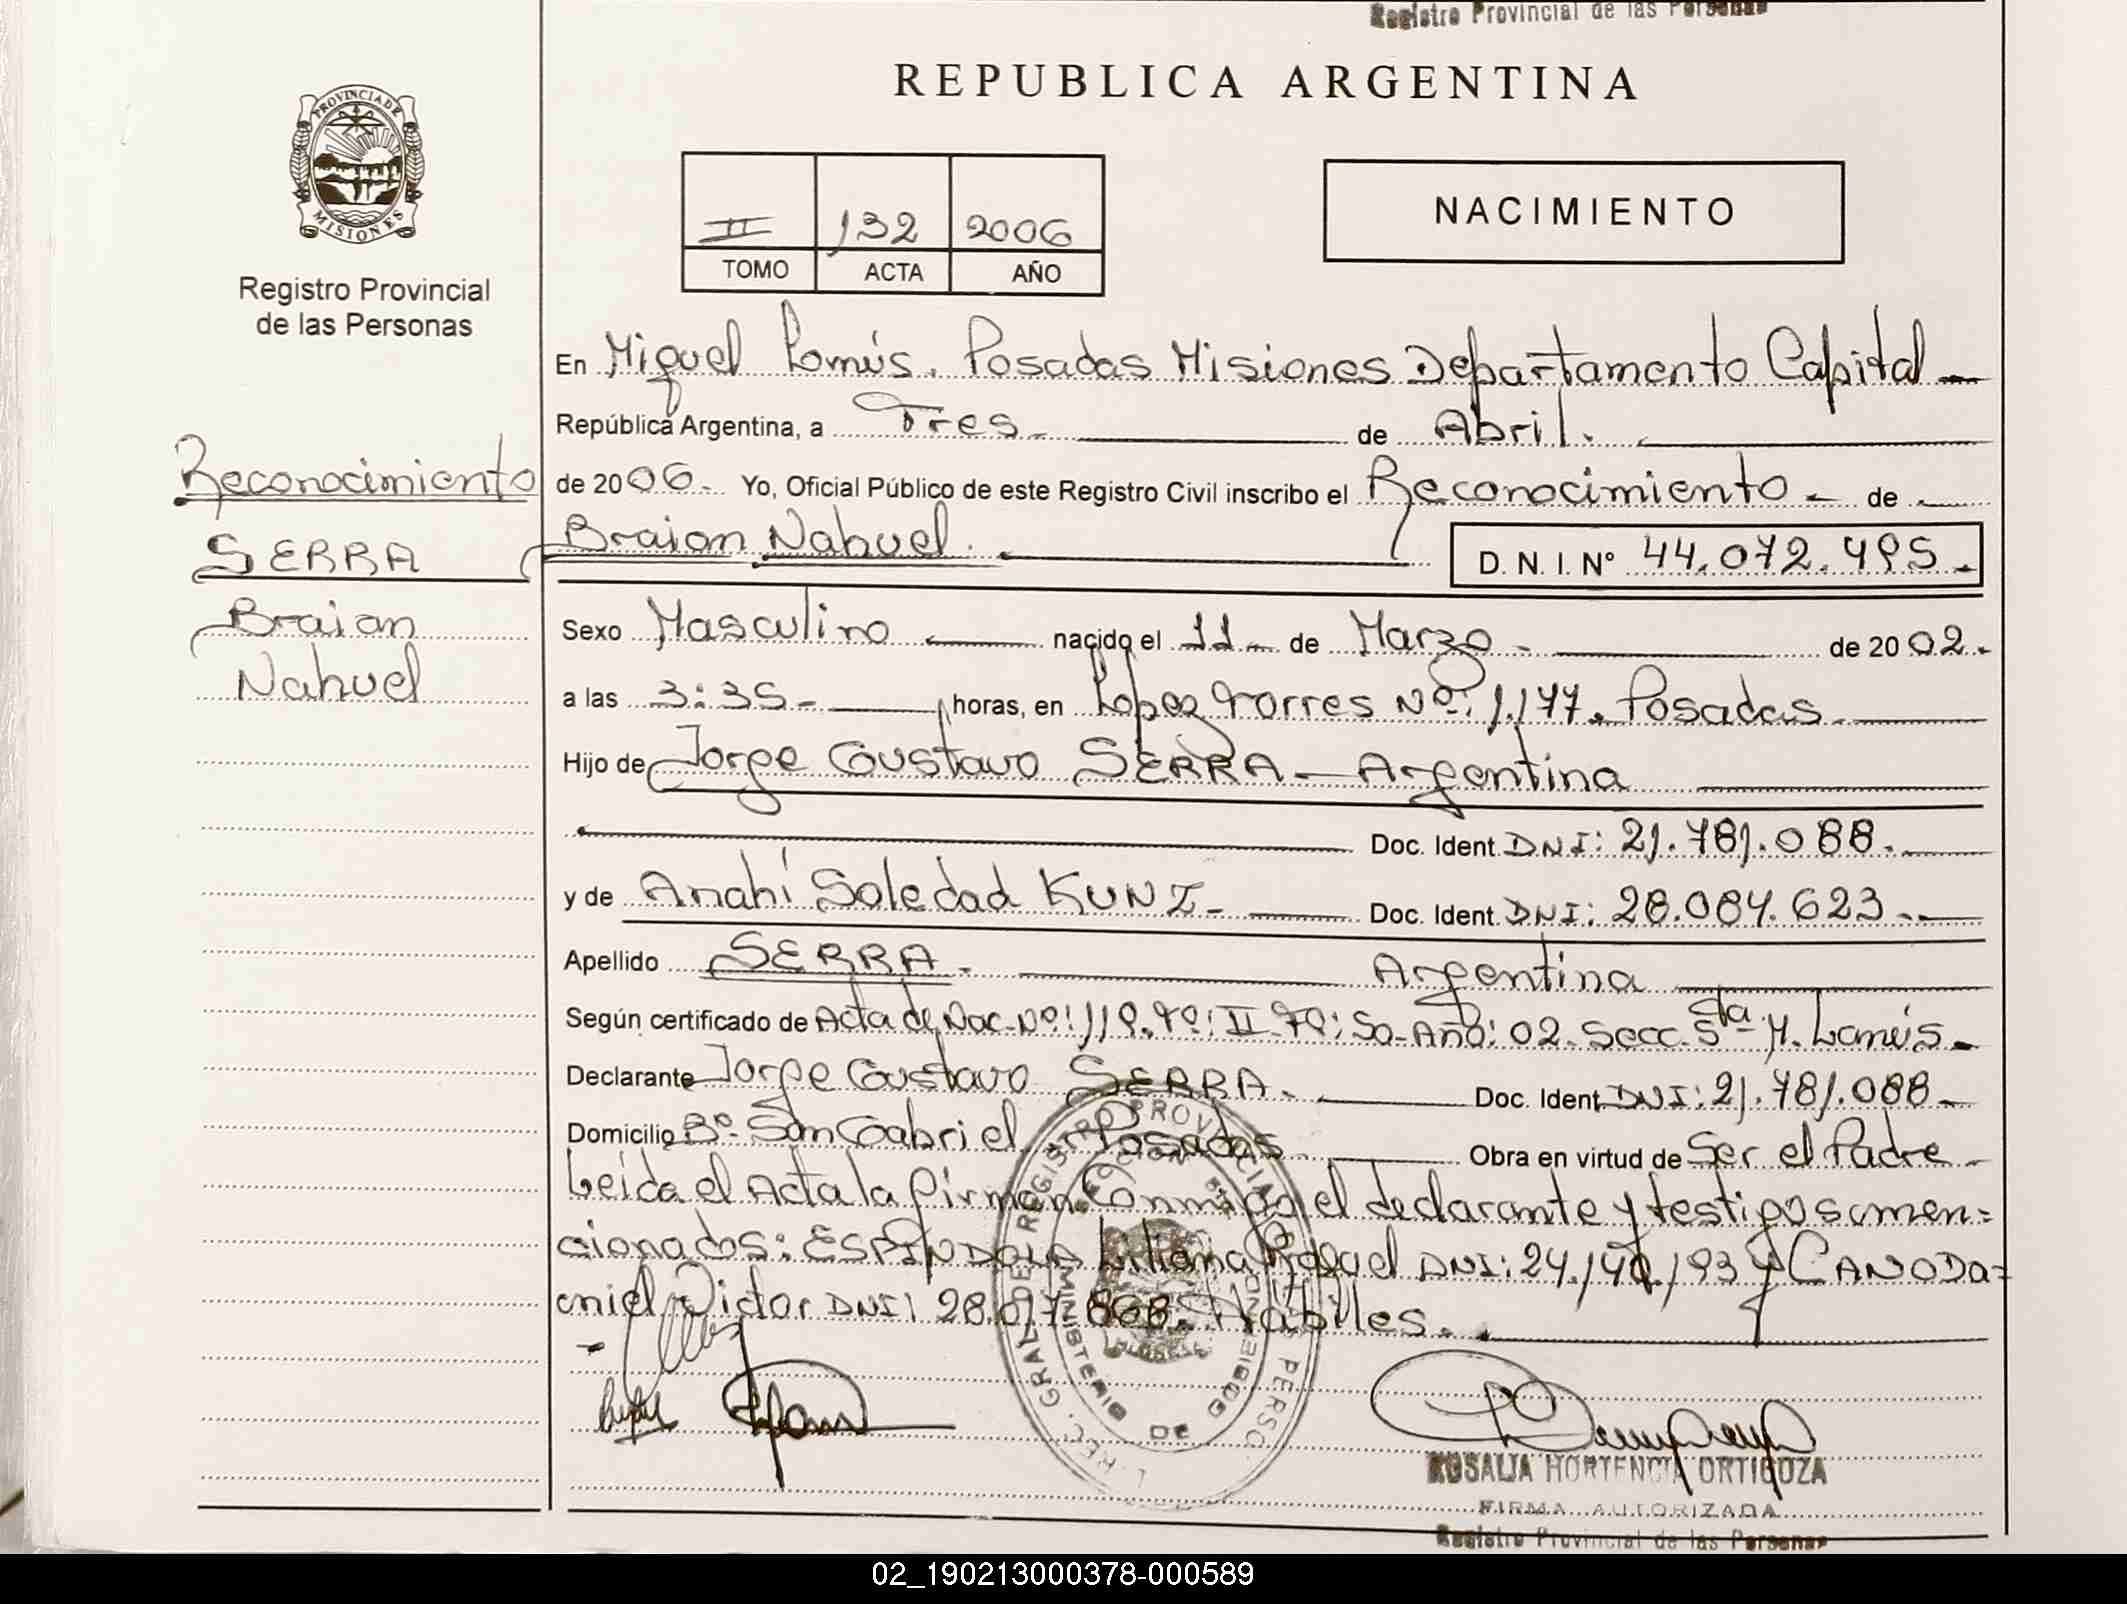 Registro Provincial de las Personas
REPUBLICA ARGENTINA
PROVINCIA DE
MISIONES
Registro Provincial
de las Personas
II 132 2006
TOMO ACTA AÑO
NACIMIENTO
En Miguel Lanús. Posadas Misiones Departamento Capital
República Argentina, a Tres de Abril.
de 2006. Yo, Oficial Público de este Registro Civil inscribo el Reconocimiento de
Braian Nahuel. D. N. I. Nº 44.072.495.
Reconocimiento
SERRA
Braian
Nahuel
Sexo Masculino nacido el 11 de Marzo de 2002.
a las 3:35 horas, en Lopez Torres Nº: 1.177. Posadas
Hijo de Jorge Gustavo SERRA - Argentina
Doc. Ident. DNI: 21.781.088.
y de Anahí Soledad KUNZ Doc. Ident. DNI: 28.084.623
Apellido SERRA. Argentina
Según certificado de Acta de Nac. Nº: 119. Tº: II Fº: 50 Año: 02. Secc. 5ta M. Lanús.
Declarante Jorge Gustavo SERRA. Doc. Ident. DNI: 21.781.088
Domicilio Bº San Gabriel Posadas Obra en virtud de Ser el Padre
Leida el Acta la firman Conmigo el declarante y testigos amen=
cionados: ESPINDOLA Liliana Raquel DNI: 24.140.193 y CANO Da=
niel Victor DNI: 28.017.868. Habiles.
ROSALIA HORTENCIA ORTIGOZA
FIRMA AUTORIZADA
Registro Provincial de las Personas
02_190213000378-000589